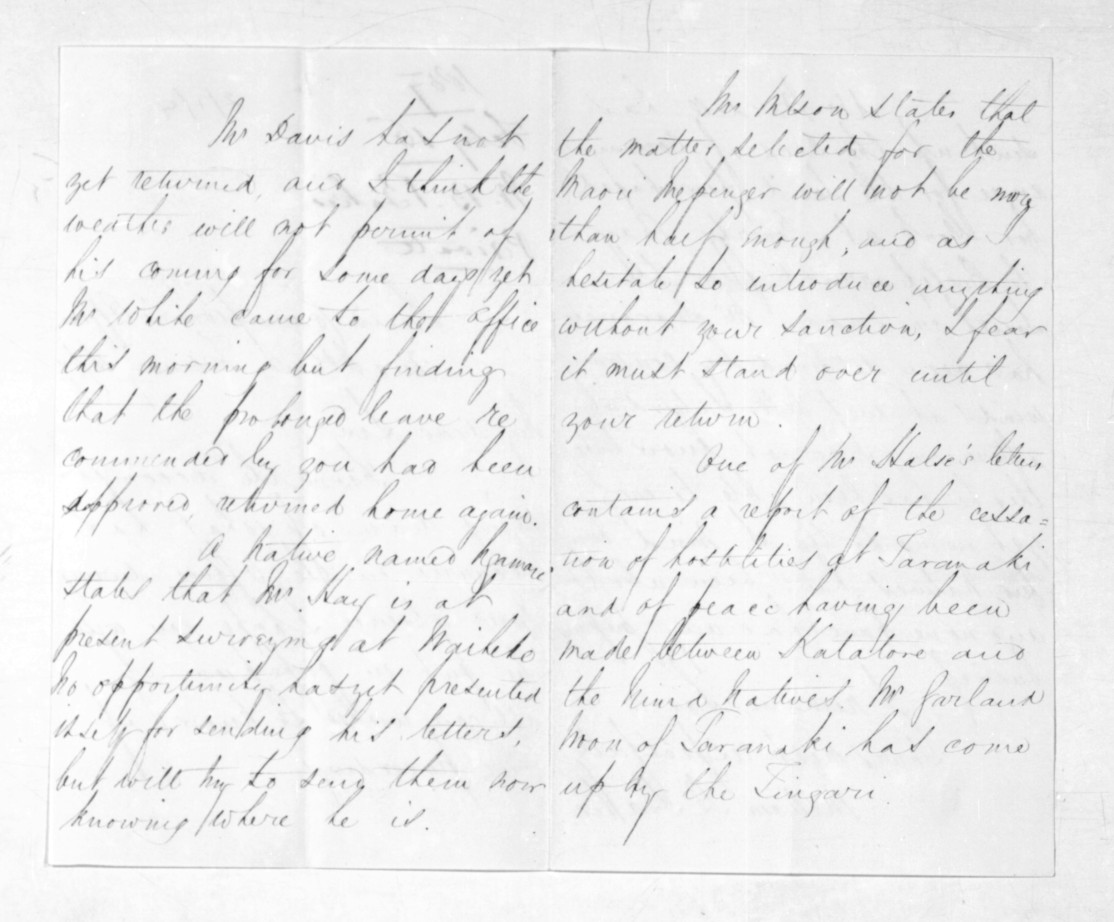 Mr Davis has not
yet returned, and I think the
weather will not permit of
his coming for some days yet
Mr White came to the office
this morning but finding
that the prolonged leave re
commended by you had been
approved returned home again.
A Native named
states that Mr. Hay is at
present surveying at Waiheke
No opportunity has yet presented
itself for sending his letters,
but will try to send them now
knowing where he is.
Mr Wilson states that
the matter selected for the
Maori Messenger will not be more
than half enough, and as I
hesitate to introduce anything
without your sanction, I fear
it must stand over until
your return.
One of Mr Halse's letters
contains a report of the cessa=
tion of hostilities at Taranaki
and of peace having been
made between Katatore and
the Natives. Mr Garland
Woon of Taranaki has come
up by the Zingari.